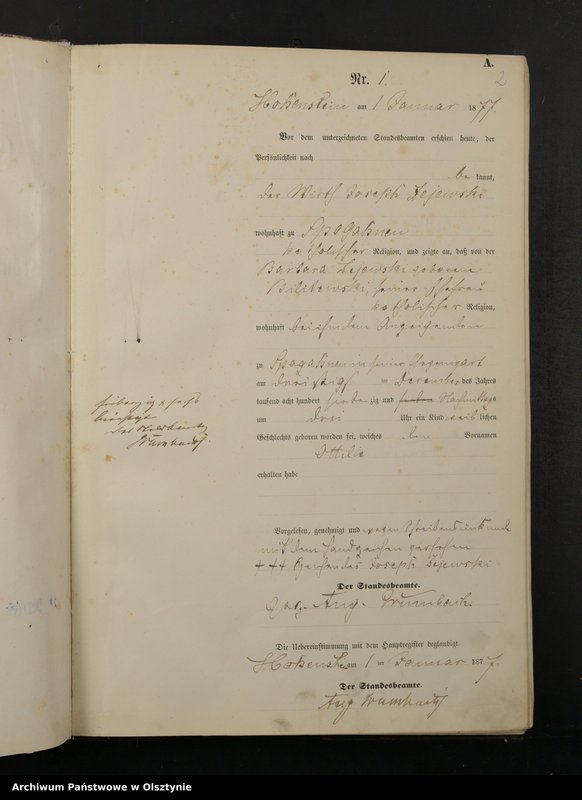 A.
2
Nr. 1.
Hohenstein am 1 Januar 1877.
Vor dem unterzeichneten Standesbeamten erschien heute, der
Persönlichkeit nach
be kannt,
der Wirth Joseph Zejewski
wohnhaft zu Spogahnen
katholischer Religion, und zeigte an, daß von der
Barbara Zejewski geborene
Bilitewski, seiner Ehefrau
katholischer Religion,
wohnhaft bei ihm dem Anzeigenden
zu Spogahnen in seiner Gegenwart
am dreißigsten Dezember des Jahres
tausend acht hundert siebenzig und sieben Nachmittags
um drei Uhr ein Kind weiblichen
Geschlechts geboren worden sei, welches den Vornamen
Ottilie
erhalten habe
siebenzig & sechs
Der Standesbeamte
Vorgelesen, genehmigt und wegen Schreibensunkunde
mit dem Handzeichen versehen
+++ Joseph Zejewski
Der Standesbeamte.
gez. Aug.
Die Uebereinstimmung mit dem Hauptregister beglaubigt
Hohenstein am 1 Januar 1877.
Der Standesbeamte.
Aug
Archiwum Państwowe w Olsztynie